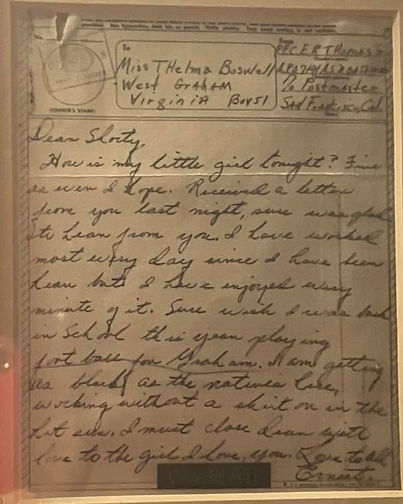 To
Miss THelma Boswell
West GraHAM
VirginiA Box 51
From
PFC E.R. THomas
% Postmaster
San Francisco, Cal.
CENSOR'S STAMP
Dear Shorty,
How is my little girl tonight? Fine
as ever I hope. Received a letter
from you last night, sure was glad
to hear from you. I have worked
most every day since I have been
hear but I have enjoyed every
minute of it. Sure wish I was back
in School this year playing
foot ball for Graham. I am getting
as black as the natives here,
working without a shirt on in the
hot sun. I must close Dear with
love to the girl I love, you. Love to all
Ernest.